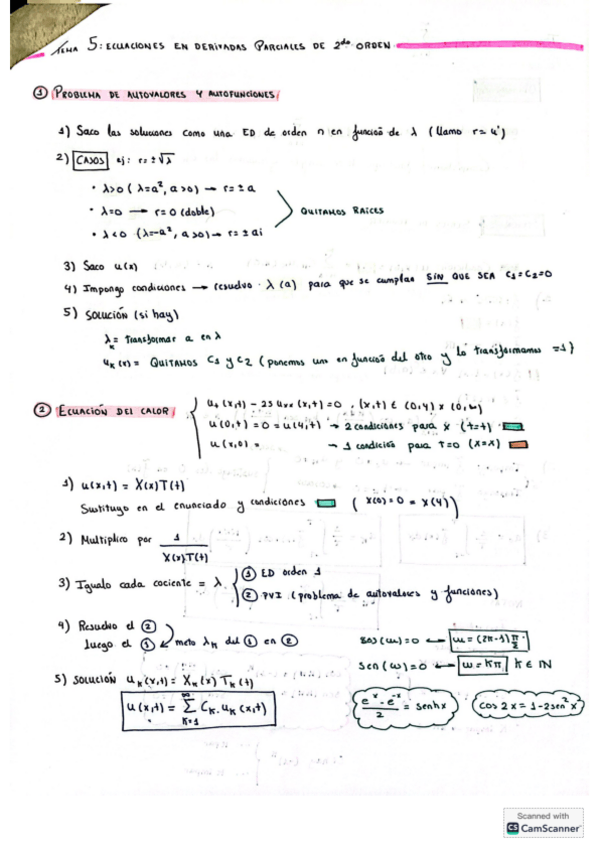 TEMA 5: ECUACIONES EN DERIVADAS PARCIALES DE 2do ORDEN
① PROBLEMA DE AUTOVALORES Y AUTOFUNCIONES
1) Saco las soluciones como una ED de orden n en función de λ (llamo r = u')
2) CASOS ej: r = ±√λ
• λ>0 (λ=a², a>0) → r = ± a
• λ=0 → r=0 (doble)
• λ<0 (λ=-a², a>0) → r = ± ai
QUITAMOS RAÍCES
3) Saco u(x)
4) Impongo condiciones → resuelvo λ(a) para que se cumplan SIN QUE SEA C1=C2=0
5) SOLUCIÓN (si hay)
λk = transformar a en λ
uk(x) = QUITAMOS C1 y C2 (ponemos uno en función del otro y lo transformamos =1)
② ECUACIÓN DEL CALOR
ut(x,t) - 25 uxx(x,t) = 0, (x,t) ∈ (0,4) x (0,∞)
u(0,t) = 0 = u(4,t) → 2 condiciones para x (t=t)
u(x,0) = → 1 condición para t=0 (x=x)
1) u(x,t) = X(x)T(t)
Sustituyo en el enunciado y condiciones (X(0)=0=X(4))
2) Multiplico por 1/X(x)T(t)
3) Igualo cada cociente = λ
① ED orden 1
② PVI (problema de autovalores y funciones)
4) Resuelvo el ②
luego el ① meto λk del ① en ②
cos(w)=0 ← w=(2n-1)π/2
sen(w)=0 ← w=Kπ K ∈ IN
5) SOLUCIÓN uk(x,t) = Xk(x) Tk(t)
u(x,t) = ∑ K=1 ∞ CK · uK(x,t)
e^x - e^-x / 2 = senhx
cos 2x = 1-2sen²x
Scanned with
CS CamScanner